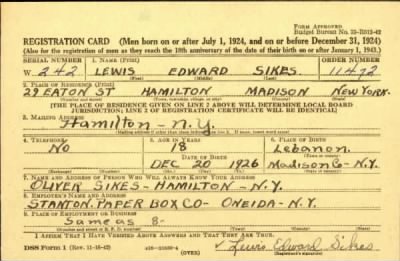 FORM APPROVED
Budget Bureau No. 33-R012-42
REGISTRATION CARD (Men born on or after July 1, 1924, and on or before December 31, 1924)
(Also for the registration of men as they reach the 18th anniversary of the date of their birth on or after January 1, 1943.)
SERIAL NUMBER 1. NAME (Print) ORDER NUMBER
W 242 LEWIS EDWARD SIKES. 11472
(First) (Middle) (Last)
2. PLACE OF RESIDENCE (Print)
29 EATON ST HAMILTON MADISON NEW YORK.
(Number and street) (Town, township, village, or city) (County) (State)
[THE PLACE OF RESIDENCE GIVEN ON LINE 2 ABOVE WILL DETERMINE LOCAL BOARD
JURISDICTION; LINE 2 OF REGISTRATION CERTIFICATE WILL BE IDENTICAL]
3. MAILING ADDRESS
Hamilton - N.Y.
4. TELEPHONE 5. AGE IN YEARS 6. PLACE OF BIRTH
No 18 Lebanon.
DATE OF BIRTH
DEC 20 1926 Madison Co - N.Y.
7. NAME AND ADDRESS OF PERSON WHO WILL ALWAYS KNOW YOUR ADDRESS
OLIVER SIKES - HAMILTON - N.Y.
8. EMPLOYER'S NAME AND ADDRESS
STANTON. PAPER BOX CO - ONEIDA - N.Y.
9. PLACE OF EMPLOYMENT OR BUSINESS
Same as 8 -
I AFFIRM THAT I HAVE VERIFIED ABOVE ANSWERS AND THAT THEY ARE TRUE.
DSS Form 1 (Rev. 11-16-42) (OVER) Lewis Edward Sikes
(Registrant's signature)